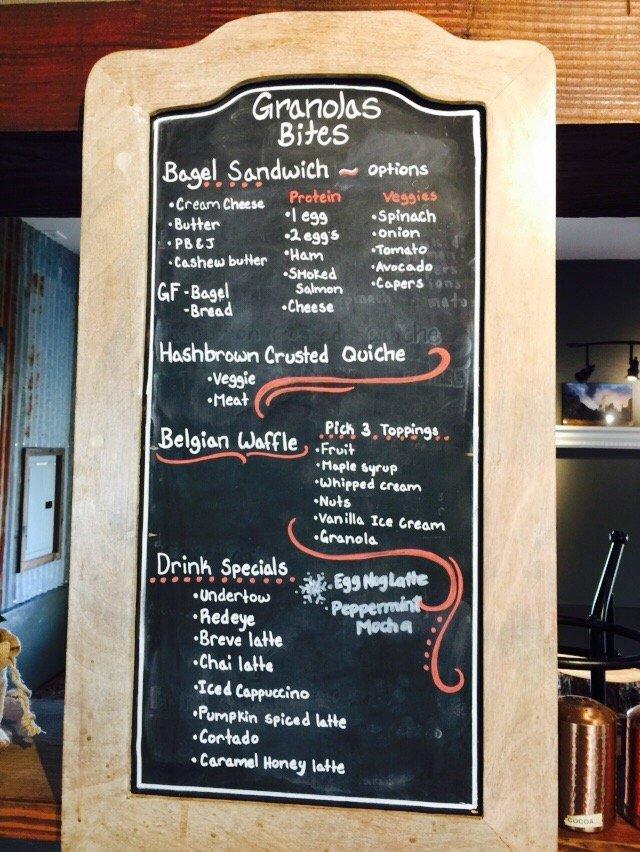 Granolas
Bites
Bagel Sandwich ~ options
• Cream Cheese
• Butter
• PB & J
• Cashew butter
GF - Bagel
- Bread
Protein
• 1 egg
• 2 egg's
• Ham
• Smoked
Salmon
• Cheese
Veggies
• Spinach
• onion
• Tomato
• Avocado
• Capers
Hashbrown Crusted Quiche
• Veggie
• Meat
Belgian Waffle
Pick 3 Toppings
• Fruit
• Maple syrup
• Whipped cream
• Nuts
• Vanilla Ice Cream
• Granola
Drink Specials
• Undertow
• Redeye
• Breve latte
• Chai latte
• Iced Cappuccino
• Pumpkin spiced latte
• Cortado
• Caramel Honey latte
• Egg Nog Latte
• Peppermint
Mocha
COCOA